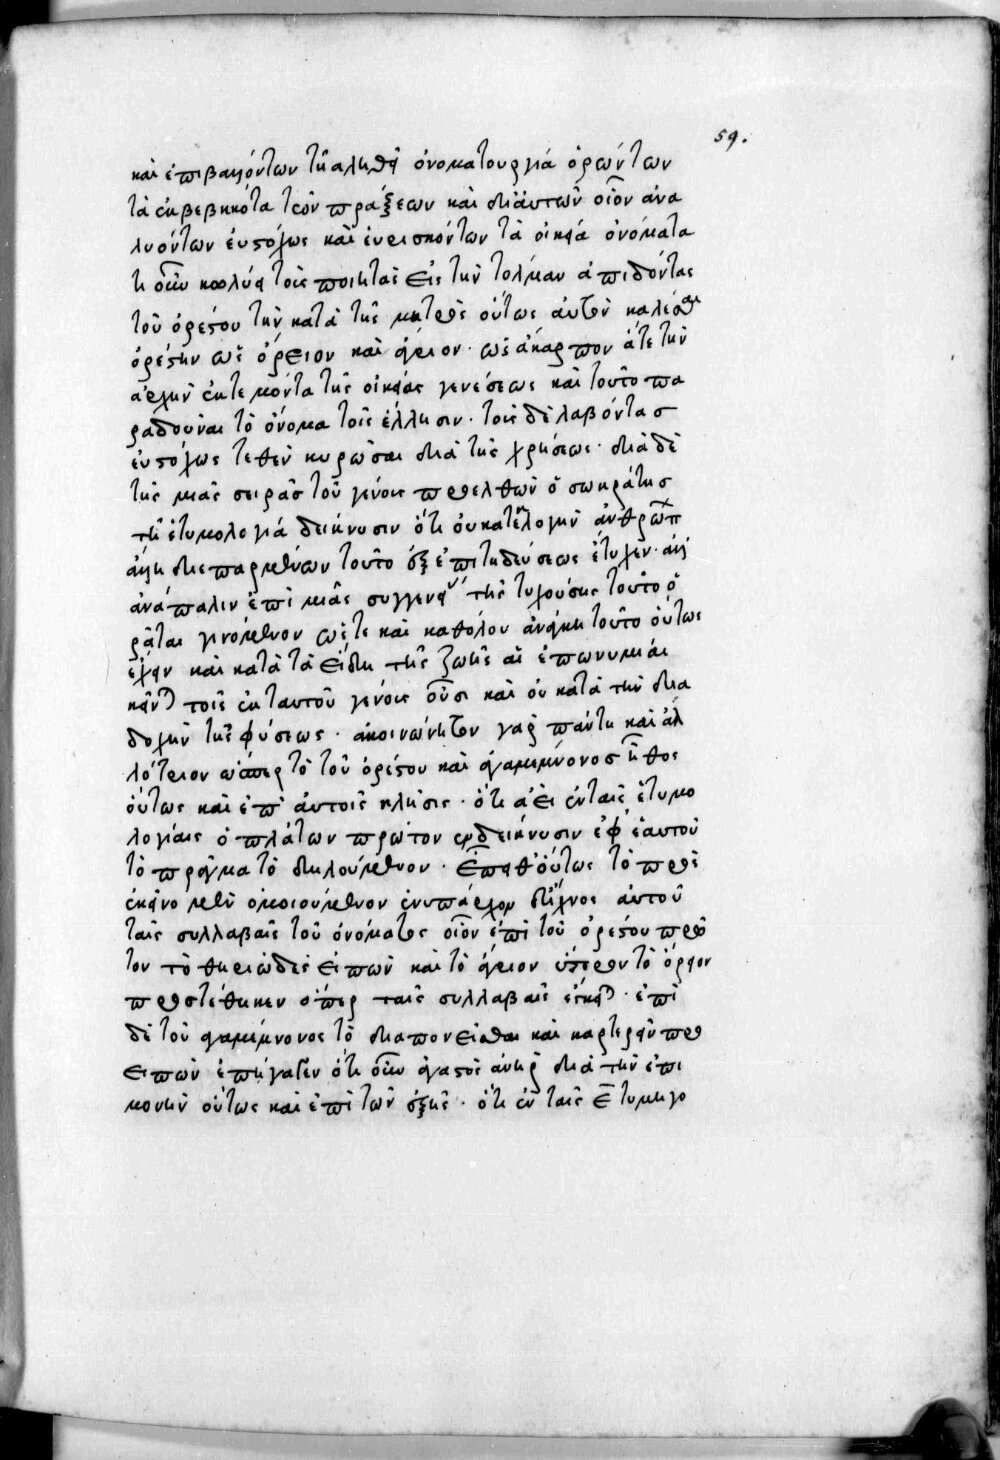 59.
καὶ ἐπιβαλλόντων τῆ ἀληθεῖ ὀνοματουργία ὁρώντων
τὰ ἐκβεβηκότα τῶν πράξεων καὶ δι' αὐτῶν οἷον ἀνα
λυόντων εὐστόχως καὶ εὑρισκόντων τὰ οἰκεῖα ὀνόματα
τί οὖν κωλύει τοὺς ποιητὰς εἰς τὴν τόλμαν ἀπιδόντας
τοῦ ὀρέστου τὴν κατὰ τῆς μητρὸς οὕτως αὐτὸν καλέσαι
ὀρέστην ὡς ὄρειον καὶ ἄγριον· ὡς ἄκαρπον ἅτε τὴν
ἀρχὴν ἐκτεμόντα τῆς οἰκείας γενέσεως καὶ τοῦτο πα
ραδοῦναι τὸ ὄνομα τοῖς ἕλλησιν· τοὺς δὲ λαβόντας
εὐστόχως τεθὲν κυρῶσαι διὰ τῆς χρήσεως· διὰ δὲ
τῆς μιᾶς σειρᾶς τοῦ γένους προελθὼν ὁ σωκράτης
τῆ ἐτυμολογία δείκνυσιν ὅτι οὐκ ἀτελόγην ἀνθρώπ
διεπαρμένων τοῦτο ἐξ ἐπιτηδεύσεως ἔτυχεν· ἀλλ'
ἀνάπαλιν ἐπὶ μιᾶς συγγενείας τῆς τυχούσης τοῦτο ὁ
ρᾶται γινόμενον ὥστε καὶ καθόλου ἀνάγκη τοῦτο οὕτως
ἔχειν καὶ κατὰ τὰ εἴδη τῆς ζωῆς αἱ ἐπωνυμίαι
τοῖς ἐκ ταυτοῦ γένους οὖσι καὶ οὐ κατὰ τὴν δια
δοχὴν τῆς φύσεως· ἀκοινώνητον γὰρ πάντη καὶ ἀλ
λότριον ὥσπερ τὸ τοῦ ὀρέστου καὶ ἀγαμέμνονος ἦθος
οὕτως καὶ ἐπ' αὐτοῖς κλῆσις· ὅτι ἀεὶ ἐν ταῖς ἐτυμο
λογίαις ὁ πλάτων πρῶτον ἐνδείκνυσιν ἐφ' ἑαυτοῦ
τὸ πρᾶγμα τὸ δηλούμενον· ἔπειθ' οὕτως τὸ πρὸς
ἐκεῖνο μὲν ὁμοιούμενον ἐνυπάρχον δὲ ἴχνος αὐτοῦ
ταῖς συλλαβαῖς τοῦ ὀνόματος οἷον ἐπὶ τοῦ ὀρέστου πρῶ
τον τὸ θηριῶδες εἰπὼν καὶ τὸ ἄγριον ὕστερον τὸ ὄρειον
προστέθηκεν ὅπερ ταῖς συλλαβαῖς ἔοικε· ἐπὶ
δὲ τοῦ ἀγαμέμνονος τὸ διαπονεῖσθαι καὶ καρτερεῖν προ
ειπὼν ἐπήγαγεν ὅτι οὖν ἀγαστὸς ἀνὴρ διὰ τὴν ἐπι
μονὴν οὕτως καὶ ἐπὶ τῶν ἑξῆς· ὅτι ἐν ταῖς ἐτυμηγο